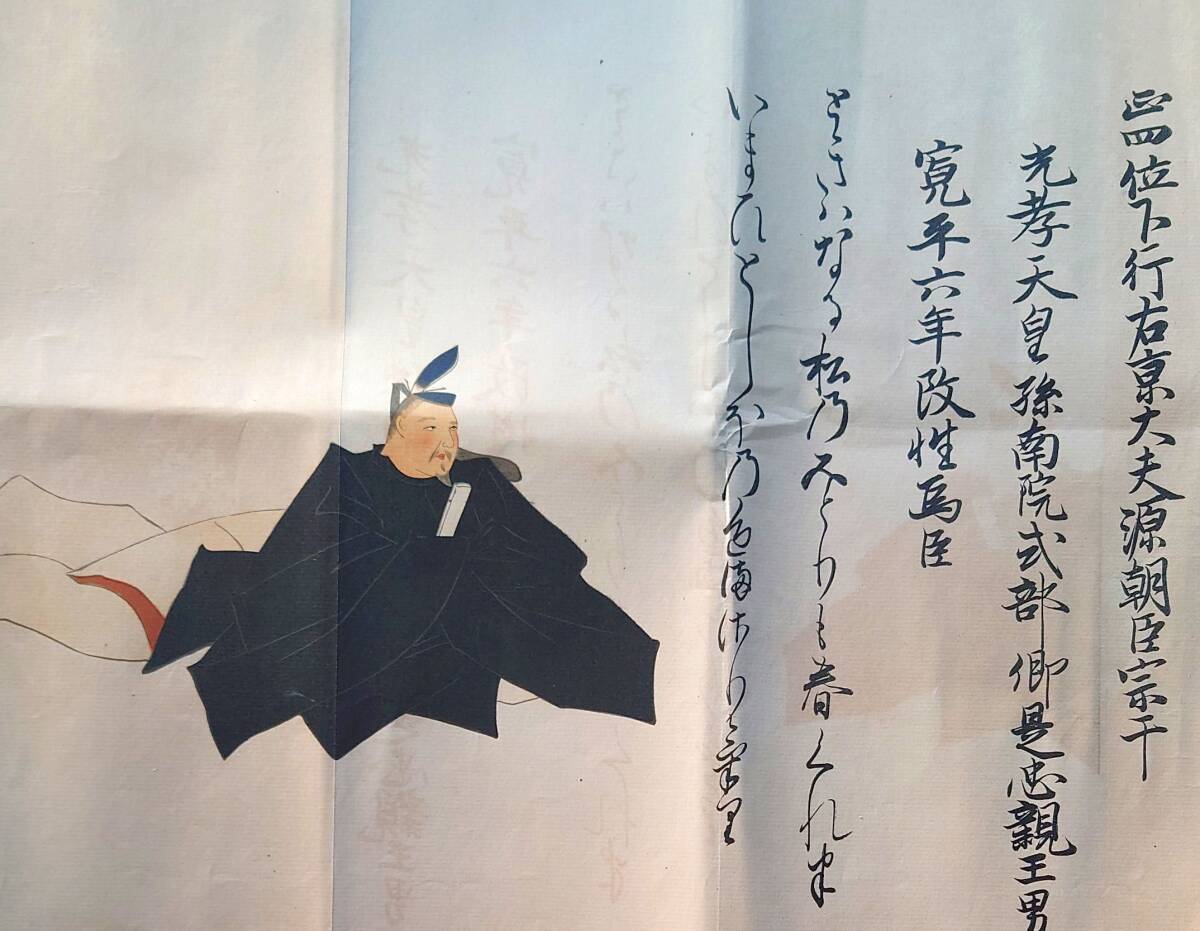 正四位下行右京大夫源朝臣宗于
光孝天皇孫南院式部卿是忠親王男
寛平六年改性爲臣
ときはなる松乃みとりも春くれは
いまひとしほ乃色満佐りけ里